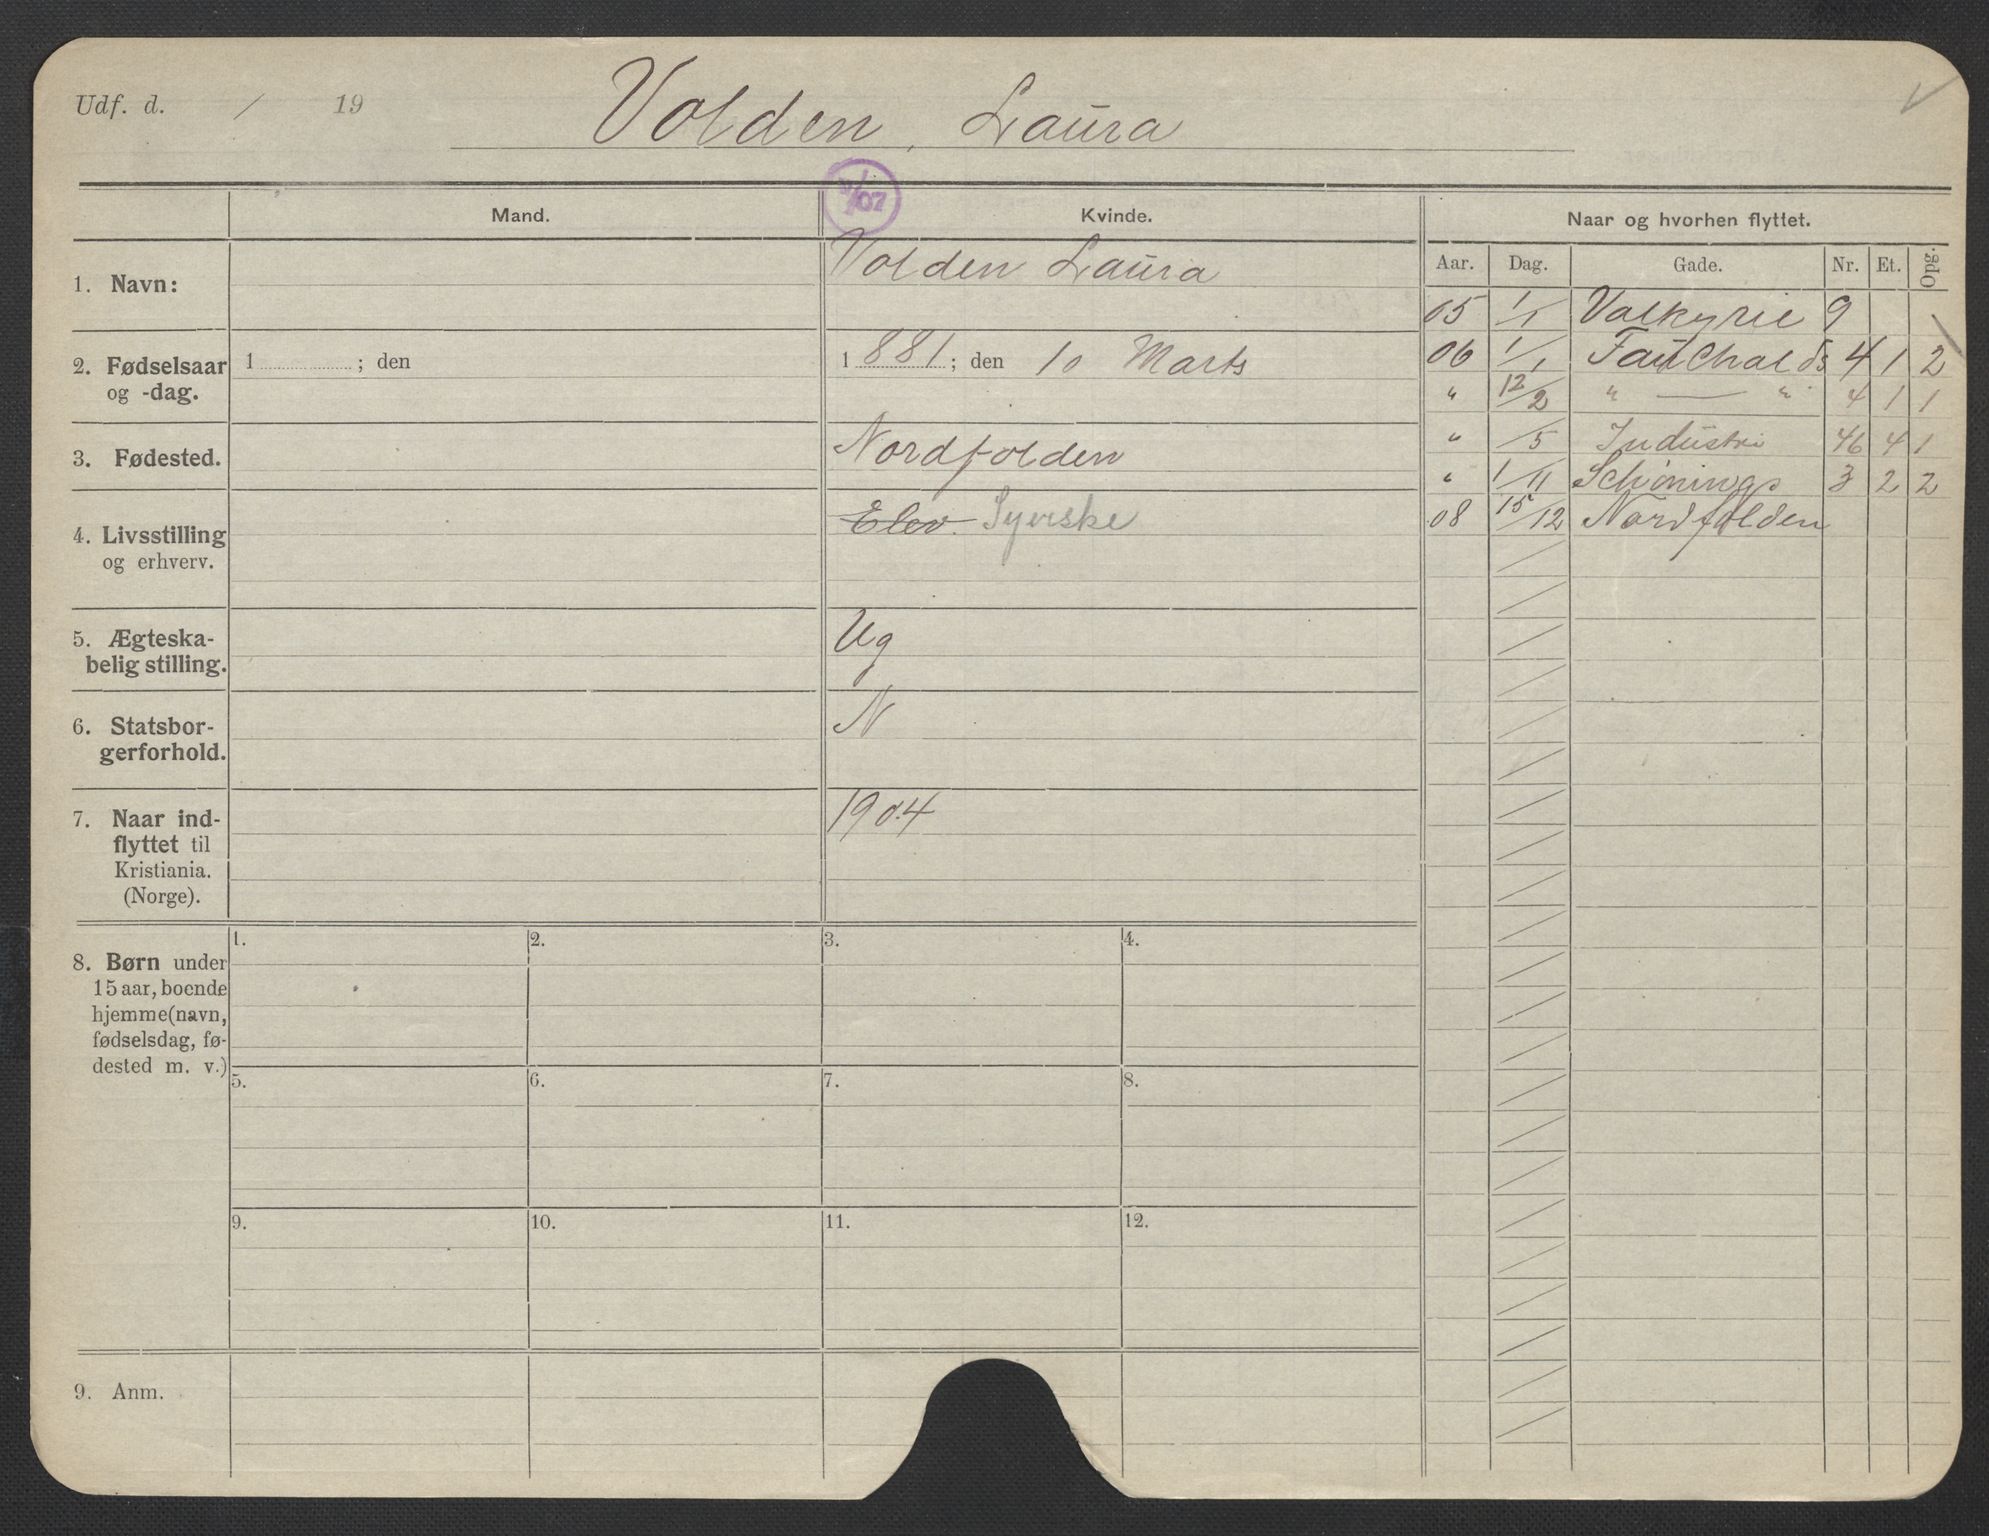 Udf. d. / 19
Volden, Laura
1/07
Mand.
Kvinde.
Naar og hvorhen flyttet.
Aar. Dag. Gade. Nr. Et. Opg.
1. Navn:
Volden Laura
2. Fødselsaar
og -dag.
1 ; den
1 881 ; den 10 Marts
3. Fødested.
Nordfolden
4. Livsstilling
og erhverv.
Elev. Syerske
5. Ægteska-
belig stilling.
Ug
6. Statsbor-
gerforhold.
N
7. Naar ind-
flyttet til
Kristiania.
(Norge).
1904
05 1/1 Valkyrie 9
06 1/1 Fauchalds 4 1 2
" 12/2 " — " 4 1 1
" /5 Industri 46 4 1
" 1/11 Schønings 3 2 2
08 15/12 Nordfolden
8. Børn under
15 aar, boende
hjemme (navn,
fødselsdag, fø-
dested m. v.)
1. 2. 3. 4.
5. 6. 7. 8.
9. 10. 11. 12.
9. Anm.